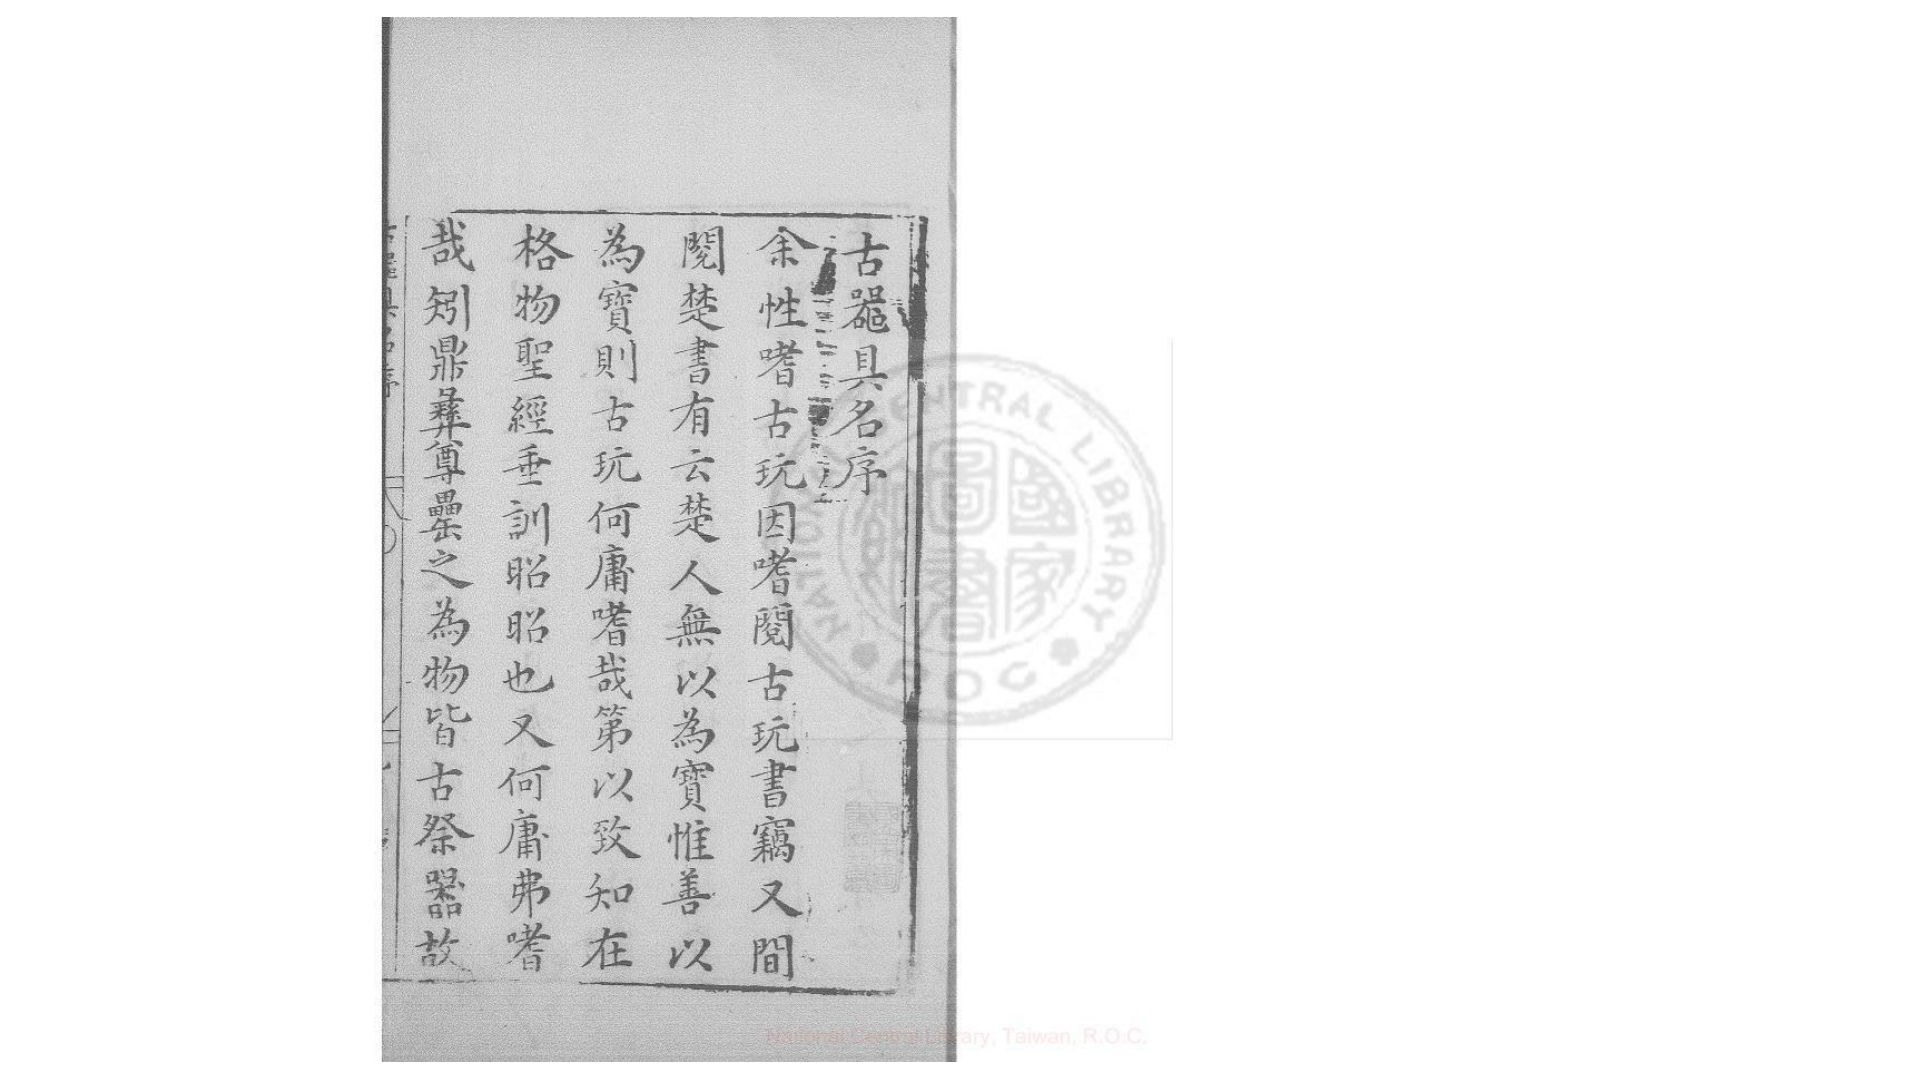 古噐具名序
余性嗜古玩因嗜閱古玩書竊又間
閱楚書有云楚人無以為寶惟善以
為寶則古玩何庸嗜哉第以致知在
格物聖經垂訓昭昭也又何庸弗嗜
哉矧鼎彝尊罍之為物皆古祭器故
NATIONAL CENTRAL LIBRARY
ROC
國家圖書館
National Central Library, Taiwan, R.O.C.